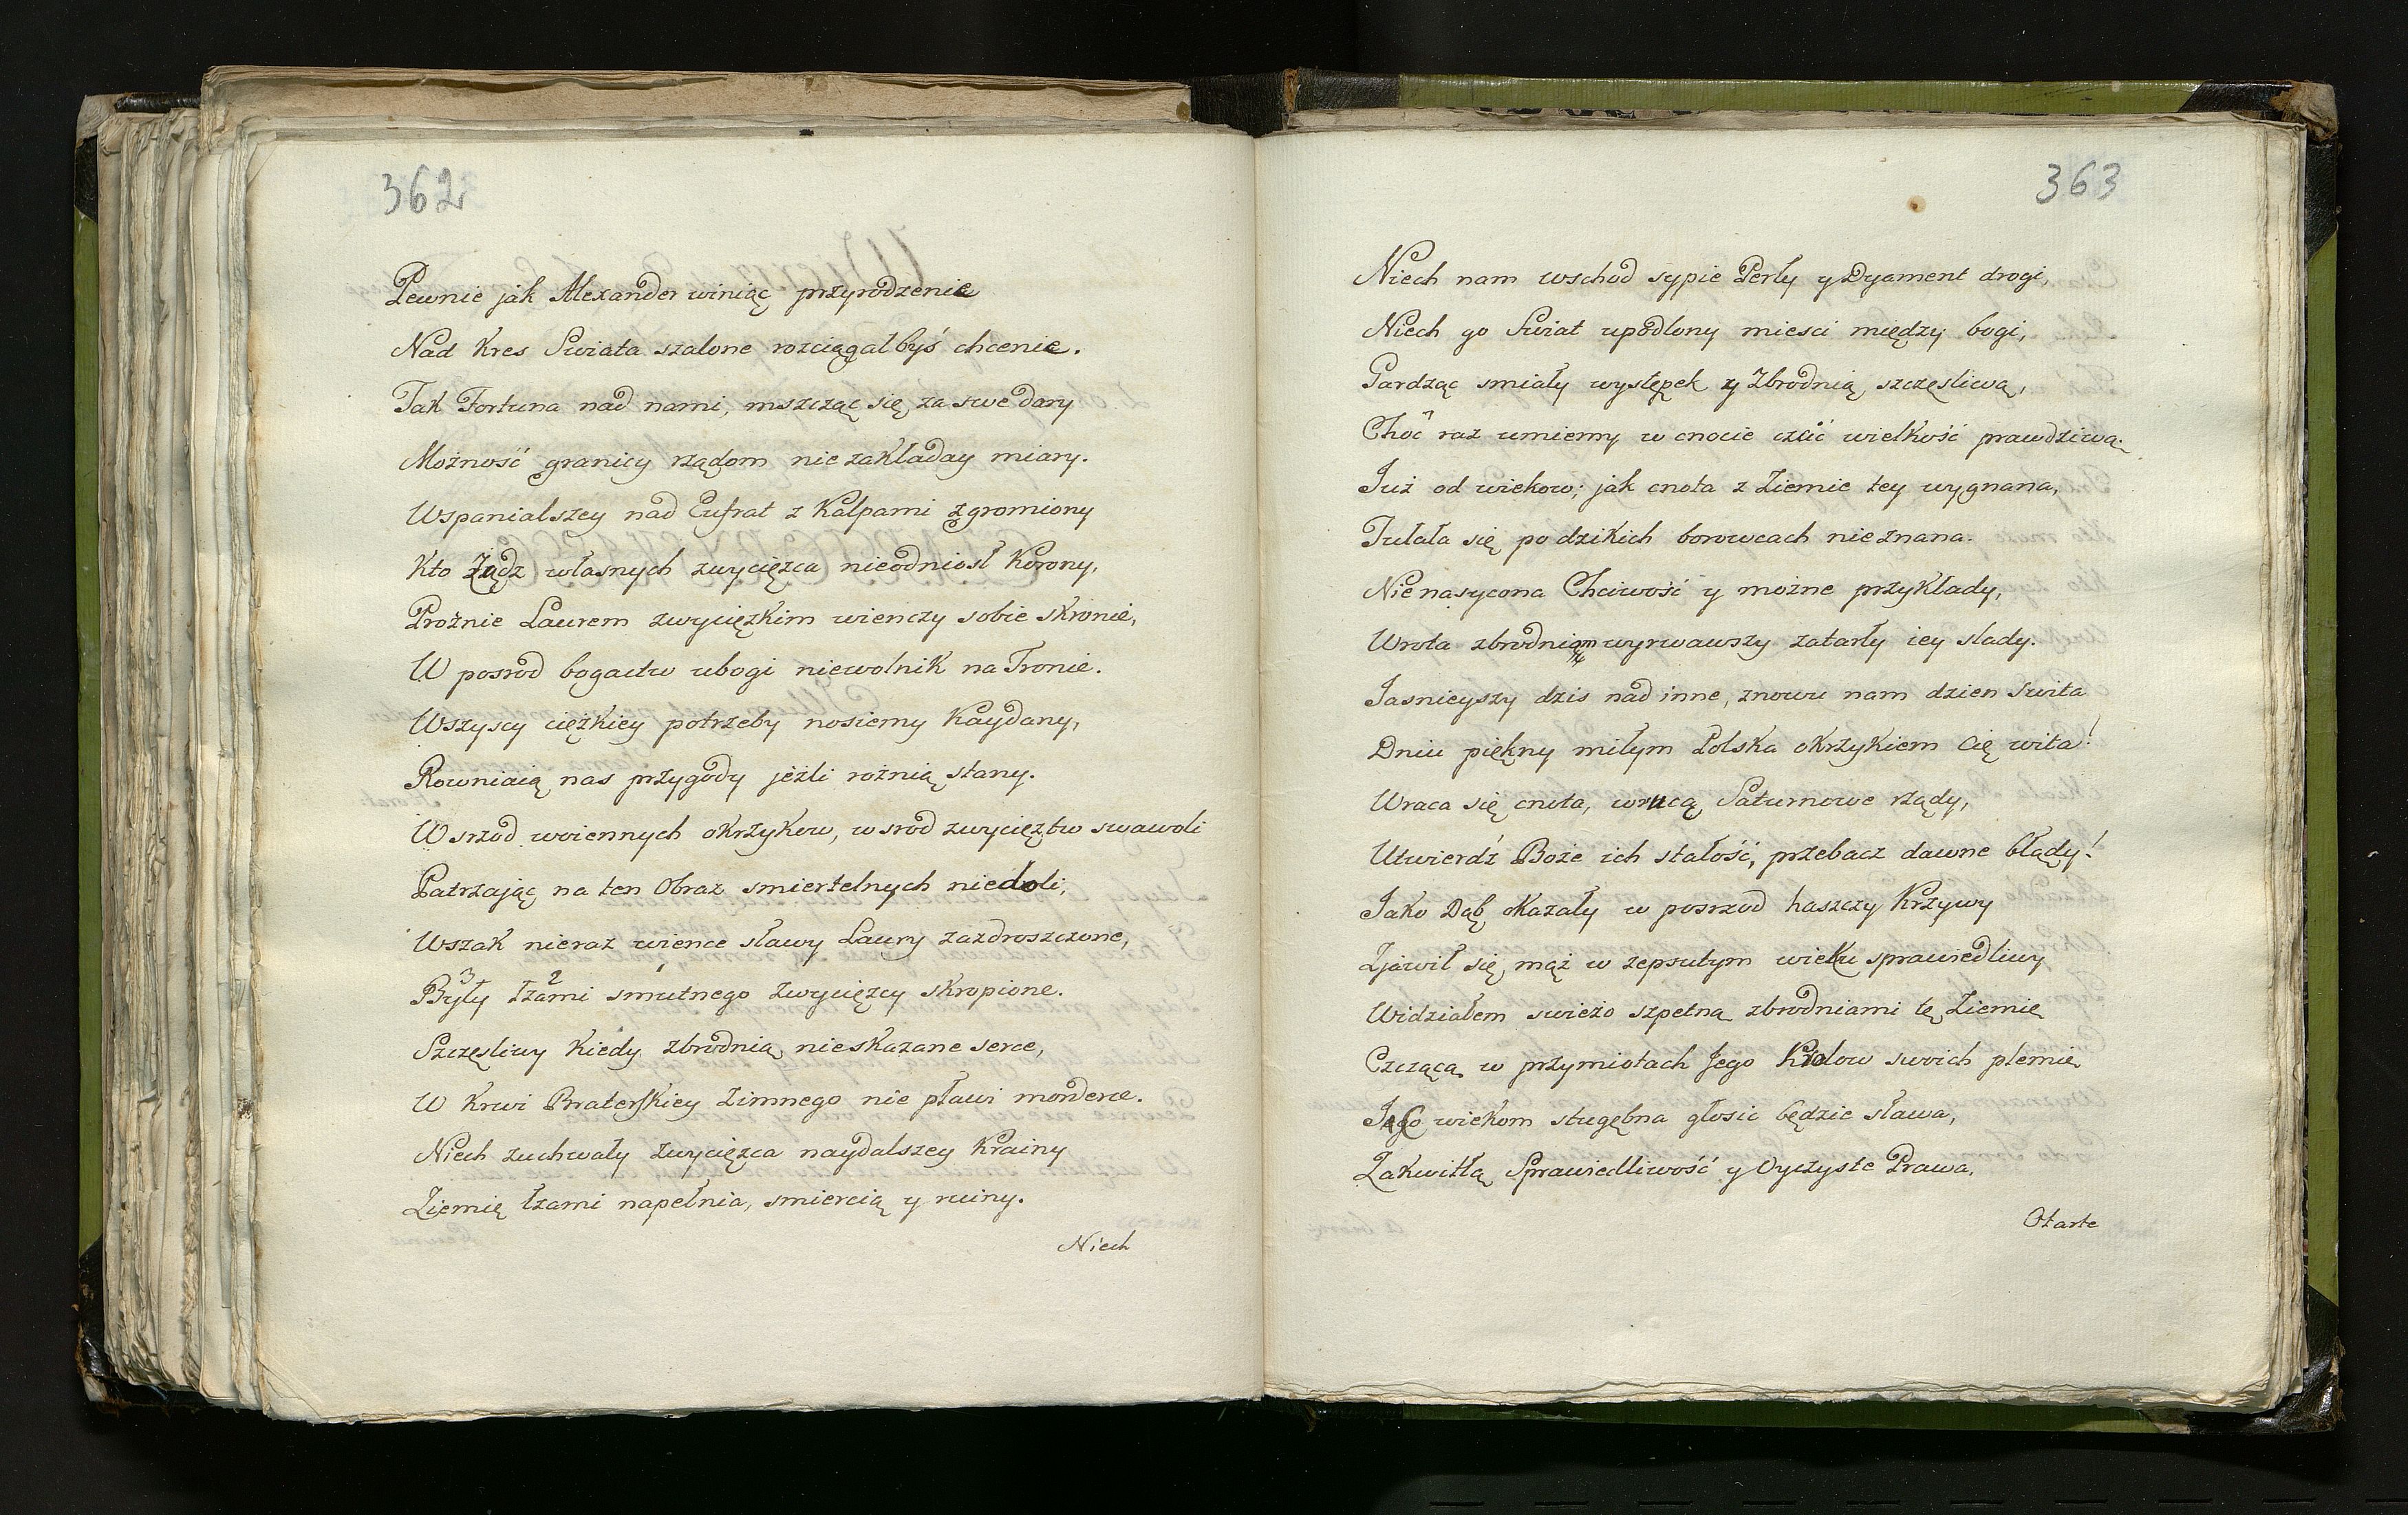 362
Pewnie jak Alexander winiąc przyrodzenie
Nad Kres Swiata szalone rozciągałbyś chcenie.
Tak Fortuna nad nami, mszcząc się za swe dary
Możność granicy rządom nie zakładay miary.
Wspanialszey nad Eufrat z Kalpami zgromiony
Kto Żądz własnych zwycięzca nieodniosł Korony,
Prożnie Laurem zwycięzkim wienczy sobie skronie,
W posrod bogactw ubogi niewolnik na Tronie.
Wszyscy ciężkiey potrzeby nosiemy Kaydany,
Rowniaią nas przygody jeżli rożnią stany.
W srzod woiennych okrzykow, w srod zwycięztw swawoli
Patrzając na ten Obraz smiertelnych niedoli,
Wszak nieraz wience sławy Laury zazdroszczone,
Były 3 łzami 2 smutnego zwycięzcy skropione.
Szczęsliwy Kiedy zbrodnią nieskazane serce,
W Krwi Braterskiey zimnego nie pławi morderce.
Niech zuchwały zwycięzca naydalszey Krainy
Ziemię łzami napełnia, smiercią y ruiny.
Niech
363
Niech nam wschod sypie Perły y Dyament drogi,
Niech go Swiat upodlony miesci między bogi,
Gardząc smiały występek y zbrodnią szczęsliwą,
Choć raz umiemy w cnocie czcić wielkość prawdziwą.
Już od wiekow; jak cnota z Ziemie tey wygnana,
Tułała się po dzikich borowcach nieznana.
Nienasycona Chciwość y możne przykłady,
Wrota zbrodniom wyrwawszy zatarły iey slady.
Jasnieyszy dzis nad inne, znowu nam dzien swita
Dniu piękny miłym Polska okrzykiem Cię wita!
Wraca się cnota, wracą Saturnowe rządy,
Utwierdź Boże ich stałość, przebacz dawne błądy!
Jako Dąb okazały w posrzod haszczy Krzywy
Zjawił się mąż w zepsutym wieku sprawiedliwy
Widziałem swieżo szpetną zbrodniami tę Ziemię
Czczącą w przymiotach Jego Krolow swoich plemie
Jego wiekom stugębna głosic będzie sława,
Zakwitłą Sprawiedliwość y Oyczyste Prawa.
Otarte